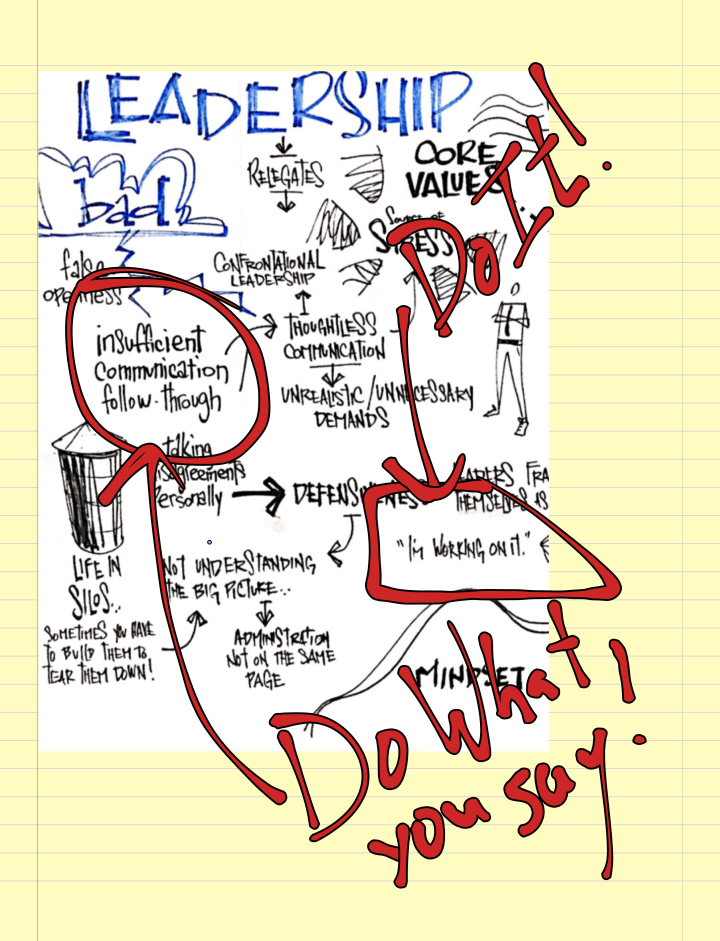 LEADERSHIP
bad
RELEGATES
CORE
VALUES
Source of
STRESS
Do It!
false
openness
CONFRONTATIONAL
LEADERSHIP
insufficient
communication
follow-through
THOUGHTLESS
COMMUNICATION
UNREALISTIC/UNNECESSARY
DEMANDS
taking
disagreements
personally
DEFENSIVENESS
LEADERS FRA
THEMSELVES AS
"I'm WORKING ON IT."
LIFE IN
SILOS..
SOMETIMES YOU HAVE
TO BUILD THEM TO
TEAR THEM DOWN!
NOT UNDERSTANDING
THE BIG PICTURE...
ADMINISTRATION
NOT ON THE SAME
PAGE
MINDSET
Do What
you say!